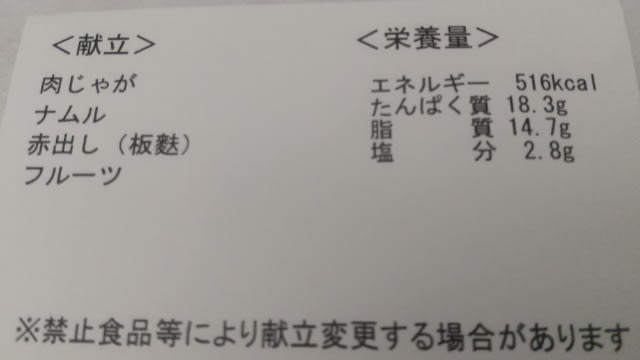 ＜献立＞
肉じゃが
ナムル
赤出し（板麩）
フルーツ
＜栄養量＞
エネルギー 516kcal
たんぱく質 18.3g
脂 質 14.7g
塩 分 2.8g
※禁止食品等により献立変更する場合があります